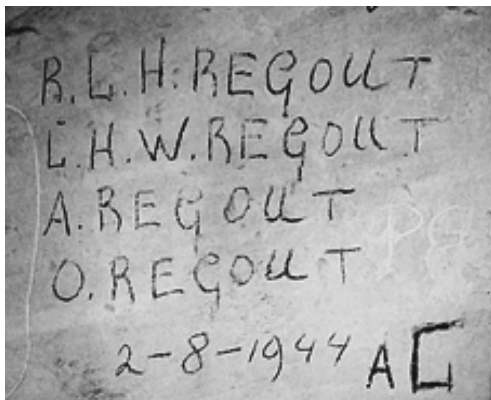 R.L.H. REGOUT
L.H.W. REGOUT
A. REGOUT
O. REGOUT
PG
2-8-1944 AC